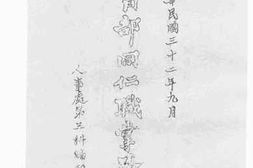 華民國三十二年九月
部同仁職掌
人事處第三科編